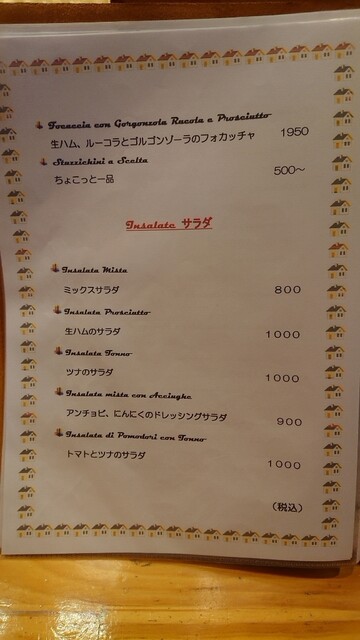 Focaccia con Gorgonzola Rucola e Prosciutto
生ハム、ルーコラとゴルゴンゾーラのフォカッチャ 1950
Stuzzichini a Scelta
ちょこっと一品 500～
Insalate サラダ
Insalata Mista
ミックスサラダ 800
Insalata Prosciutto
生ハムのサラダ 1000
Insalata Tonno
ツナのサラダ 1000
Insalata mista con Acciughe
アンチョビ、にんにくのドレッシングサラダ 900
Insalata di Pomodori con Tonno
トマトとツナのサラダ 1000
（税込）